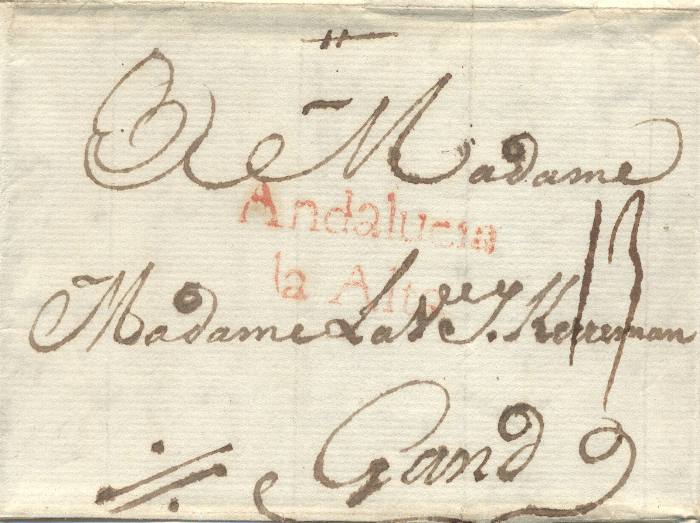 A Madame
Andalucia
la Alta
Madame La Vey. Kerreman
13
Gand